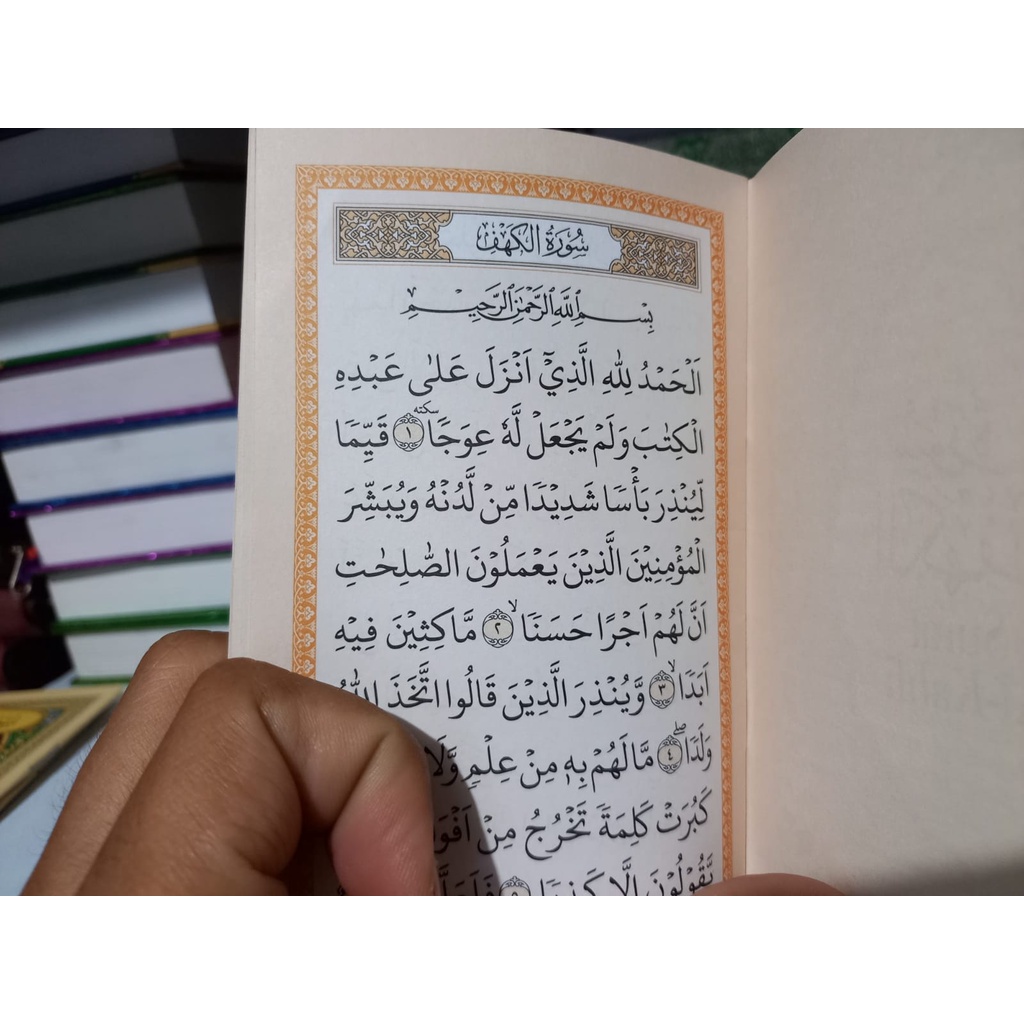 سُورَةُ الْكَهْفِ
بِسْمِ اللهِ الرَّحْمٰنِ الرَّحِيْمِ
اَلْحَمْدُ لِلهِ الَّذِيْٓ اَنْزَلَ عَلٰى عَبْدِهِ
الْكِتٰبَ وَلَمْ يَجْعَلْ لَّهٗ عِوَجًا ۜ ١ قَيِّمًا
لِّيُنْذِرَ بَأْسًا شَدِيْدًا مِّنْ لَّدُنْهُ وَيُبَشِّرَ
الْمُؤْمِنِيْنَ الَّذِيْنَ يَعْمَلُوْنَ الصّٰلِحٰتِ
اَنَّ لَهُمْ اَجْرًا حَسَنًا ۙ ٢ مَّاكِثِيْنَ فِيْهِ
اَبَدًا ۙ ٣ وَّيُنْذِرَ الَّذِيْنَ قَالُوا اتَّخَذَ اللهُ
وَلَدًا ۖ ٤ مَّا لَهُمْ بِهٖ مِنْ عِلْمٍ وَّلَا
كَبُرَتْ كَلِمَةً تَخْرُجُ مِنْ